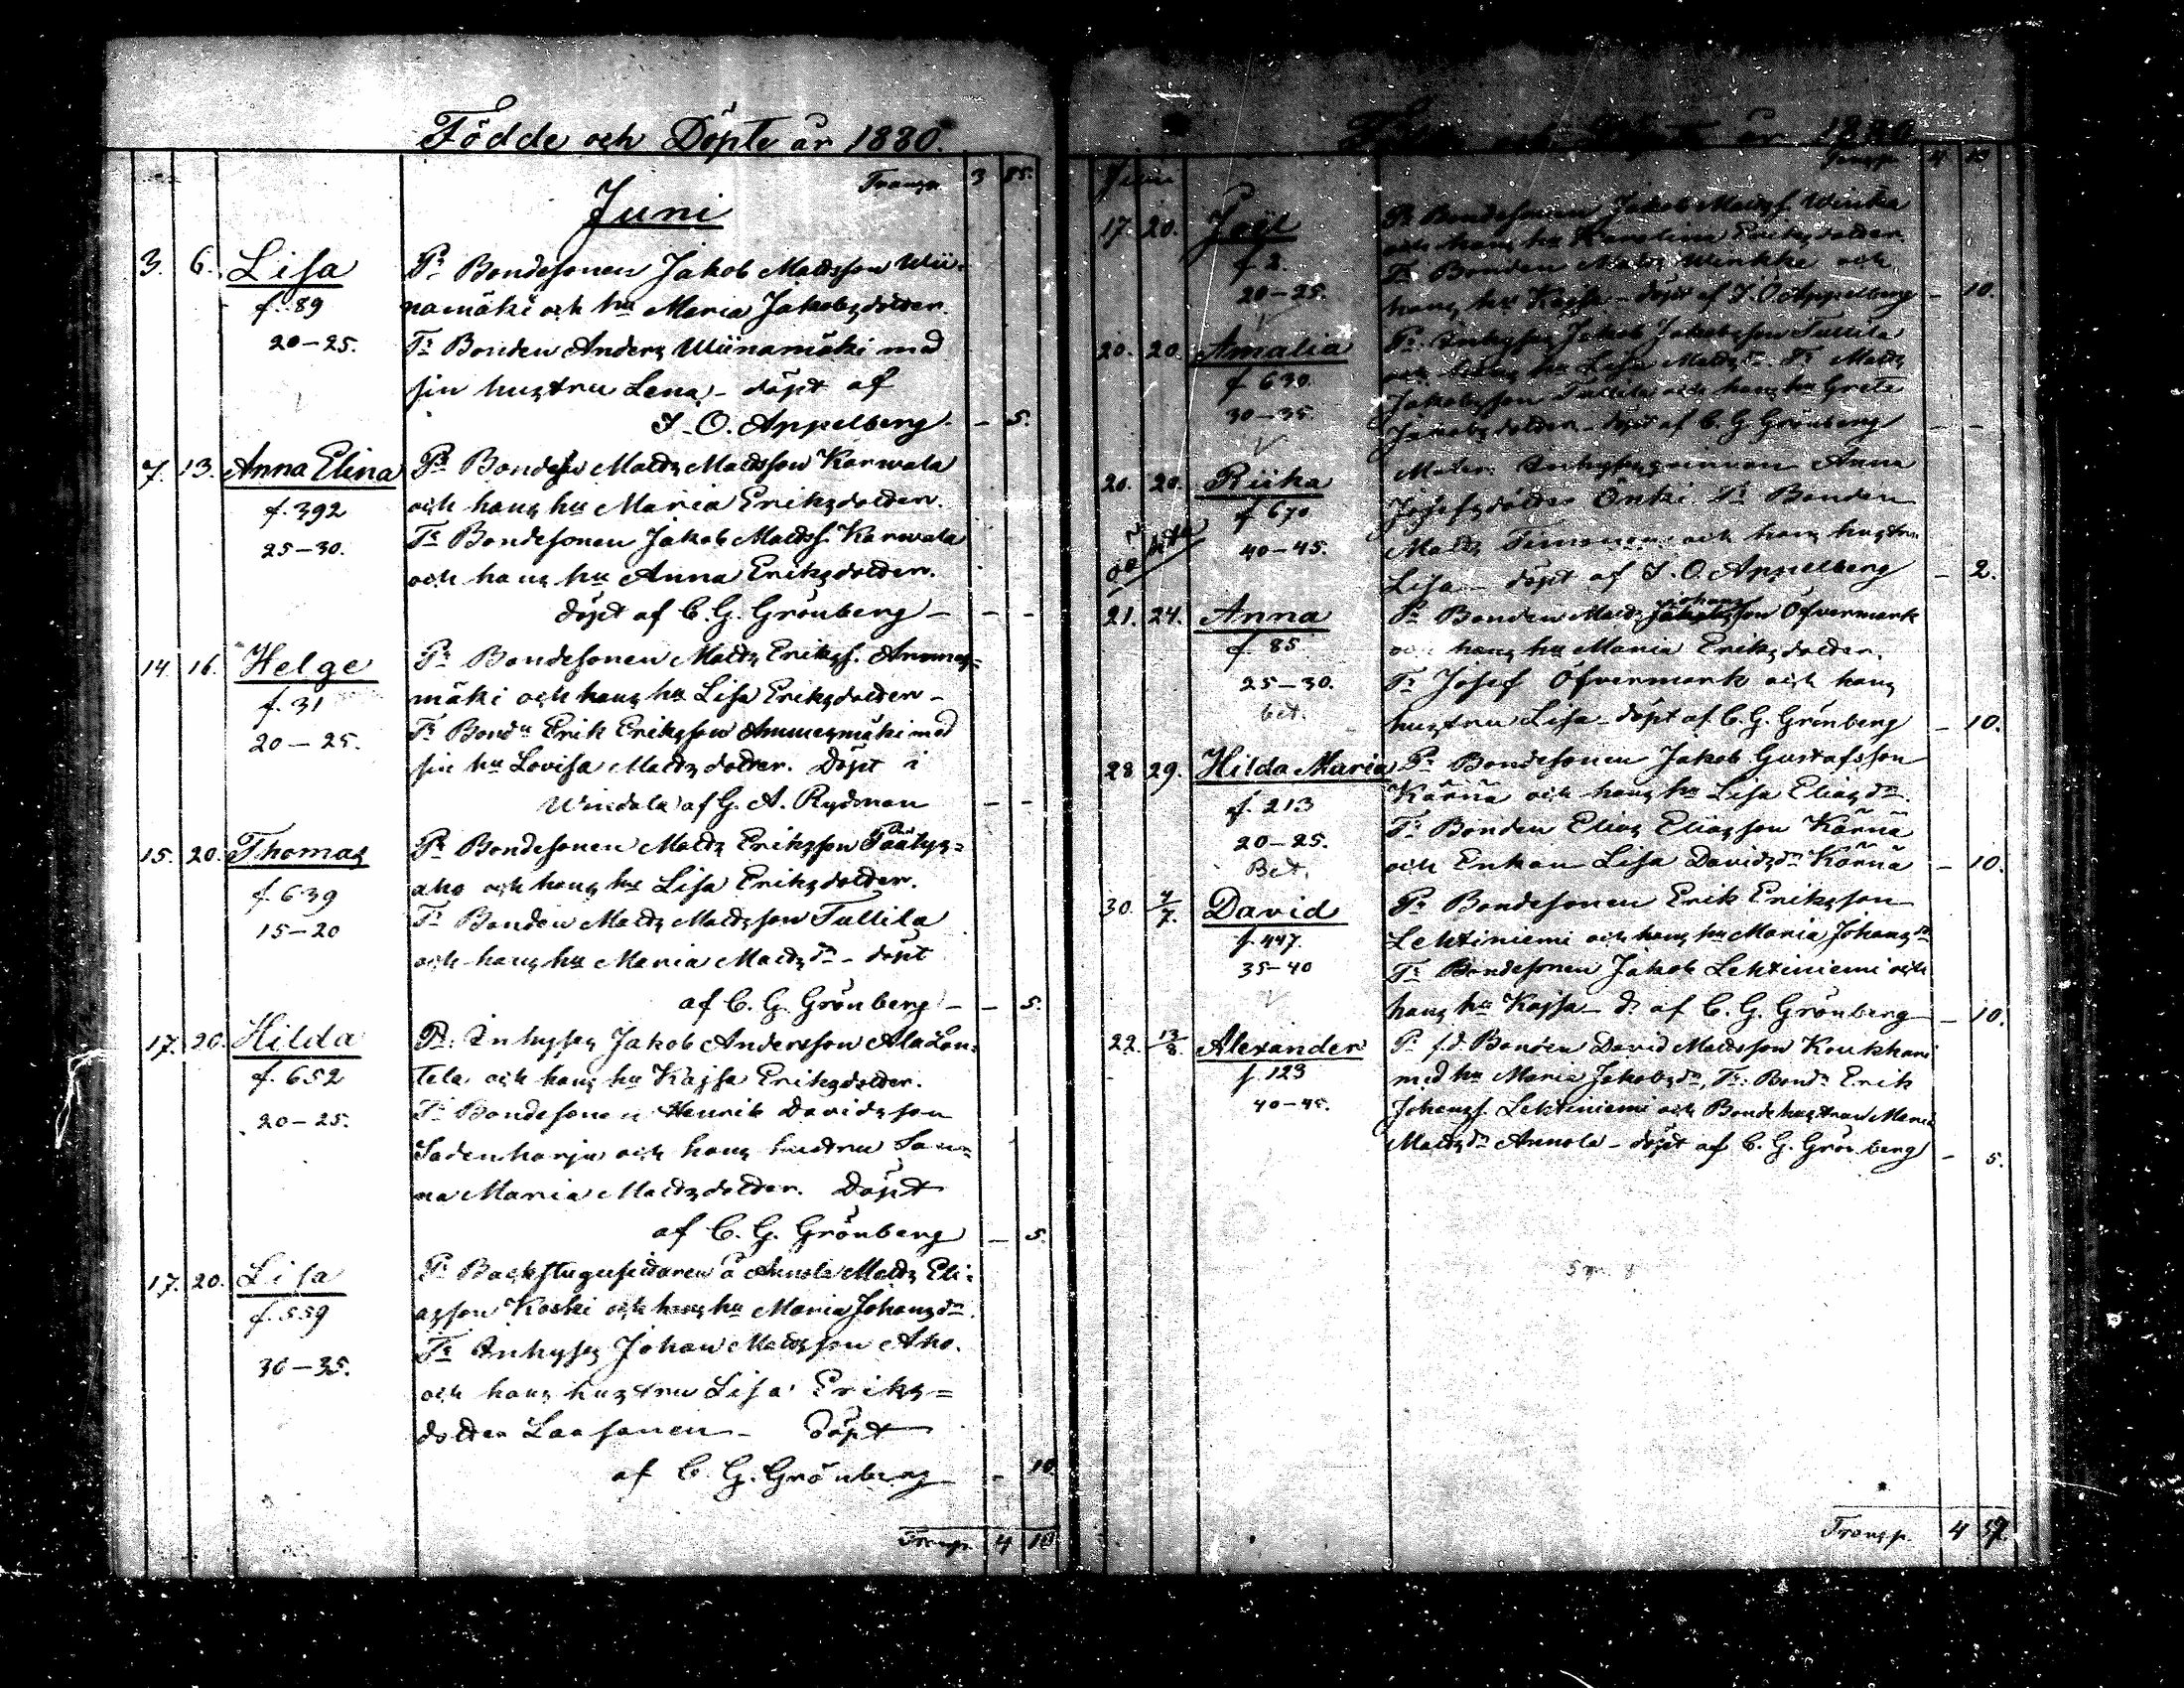 Födde och Döpte år 1880.
Transp. 3 85.
Juni
3. 6. Lisa Pr Bondesonen Jakob Mattsson Wii-
f. 89 namäki och hu Maria Jakobsdotter.
20-25. Tr Bonden Anders Wiinamäki med
sin hustru Lena - döpt af
J. O. Appelberg - 5.
7. 13. Anna Elina Pr Bonden Matts Mattsson Karvala
f. 392 och hans hu Maria Eriksdotter.
25-30. Tr Bondesonen Jakob Mattss. Karvala
och hans hu Anna Eriksdotter.
döpt af C. G. Grönberg - - -
14. 16. Helge Pr Bondesonen Matts Erikss. Ammes=
f. 31 mäki och hans hu Lisa Eriksdotter -
20-25. Tr Bondn Erik Eriksson Ammesmäki med
sin hu Lovisa Mattsdotter. Döpt i
Windala af G. A. Rydman - -
15. 20. Thomas Pr Bondesonen Matts Eriksson Päätys=
f. 639 aho och hans hu Lisa Eriksdotter.
15-20 Tr Bonden Matts Mattsson Tullila
och hans hu Maria Mattsdr - döpt
af C. G. Grönberg - - 5.
17. 20. Hilda Pr. Inhyses Jakob Andersson Ala Lan=
f. 652 tela och hans hu Kajsa Eriksdotter.
20-25. Tr Bondesonen Henrik Davidsson
Sadenharju och hans hustru San=
na Maria Mattsdotter. Döpt
af C. G. Grönberg - 5.
17. 20. Lisa Pr Backstugusittaren å Annola Matts Eli-
f. 559 asson Koski och hans hu Maria Johansdr.
30-35. Tr Inhyses Johan Mattsson Aho.
och hans hustru Lisa Eriks=
dotter Laasanen - Döpt
af C. G. Grönberg - 10.
Transp. 4 10
Födde och Döpte år 1880.
Juni Transp. 4 10
17. 20. Joël Pr Bondesonen Jakob Matss. Winkka
och hans hu Karolina Eriksdotter.
f. 2. Tr Bonden Matts Winkka och
20-25. hans hu Kajsa - döpt af J. O. Appelberg - 10.
20. 20. Amalia Pr. Inhyses Jakob Jakobsson Tullila
och hans hu Lisa Mattsdr. Tr Matts
f 630. Jakobsson Tullila och hans hu Greta
30-35. Jakobsdotter - döpt af C. G. Grönberg - -
20. 20. Riika Moder: Inhysesqvinnan Anna
f 670 Josefsdotter Önki. Tr Bonden
oäkta 40-45. Matts Timonen och hans hustru
Lisa - döpt af J. O. Appelberg - 2.
21. 24. Anna Pr Bonden Matts Johansson Öfvermark
f. 85. och hans hu Maria Eriksdotter.
25-30. Tr Josef Öfvermark och hans
bet. hustru Lisa - döpt af C. G. Grönberg - 10.
28 29. Hilda Maria Pr Bondesonen Jakob Gustafsson
f. 213 Kärnä och hans hu Lisa Eliasdr.
20-25. Tr Bonden Elias Eliasson Kärnä
Bet. och Enkan Lisa Davidsdr Kärnä - 10.
30. 4/7. David Pr Bondesonen Erik Eriksson
f. 447. Lehtiniemi och hans hu Maria Johansdr
35-40 Tr Bondesonen Jakob Lehtiniemi och
hans hu Kajsa - d. af C. G. Grönberg - 10.
22. 13/8. Alexander Pr f.d. Bonden David Mattsson Koukkari
f. 123 med hu Maria Jakobsdr, Tr: Bondn Erik
40-45. Johanss. Lehtiniemi och Bondehustrun Maria
Mattsdr Annola - döpt af C. G. Grönberg - 5.
Transp. 4 57.